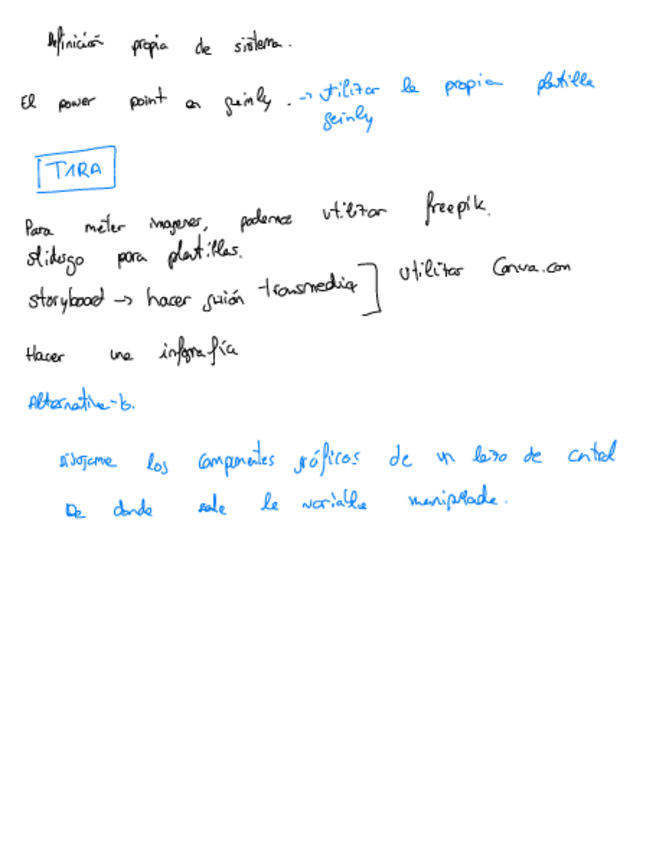 Definición propia de sistema.
El power point en genially. → utilizar la propia plantilla
genially
TARA
Para meter imagenes, podemos utilizar freepik.
slidesgo para plantillas.
storyboard → hacer guión transmedia] utilizar Canva.com
Hacer una infografía
Alternative-to.
Dibujame los componentes gráficos de un lazo de control
De donde sale la variable manipulada.